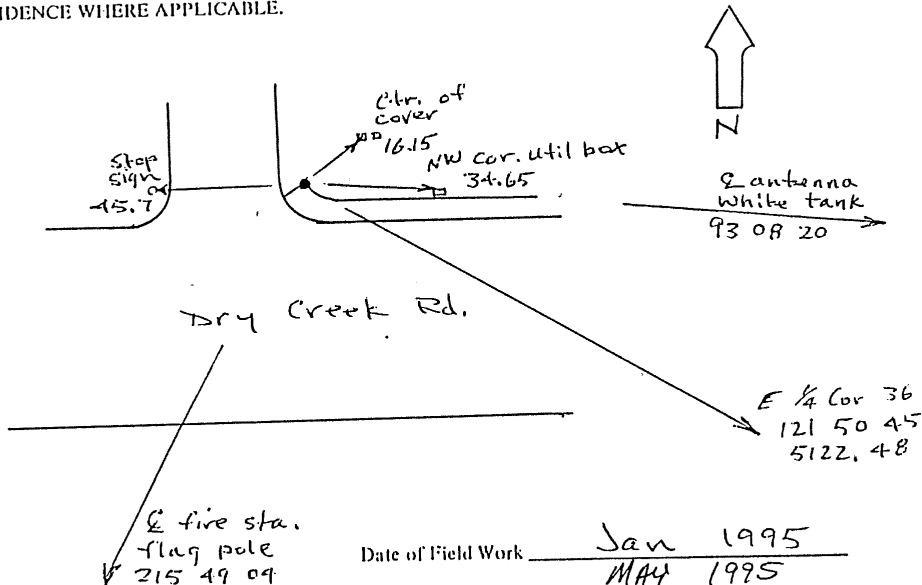 IDENCE WHERE APPLICABLE.
N
Ctr. of
cover
16.15
NW cor. util box
34.65
Stop
Sign
45.7
℄ antenna
White tank
93 08 20
Dry Creek Rd.
E 1/4 Cor 36
121 50 45
5122.48
℄ fire sta.
flag pole
215 49 04
Date of Field Work Jan 1995
MAY 1995